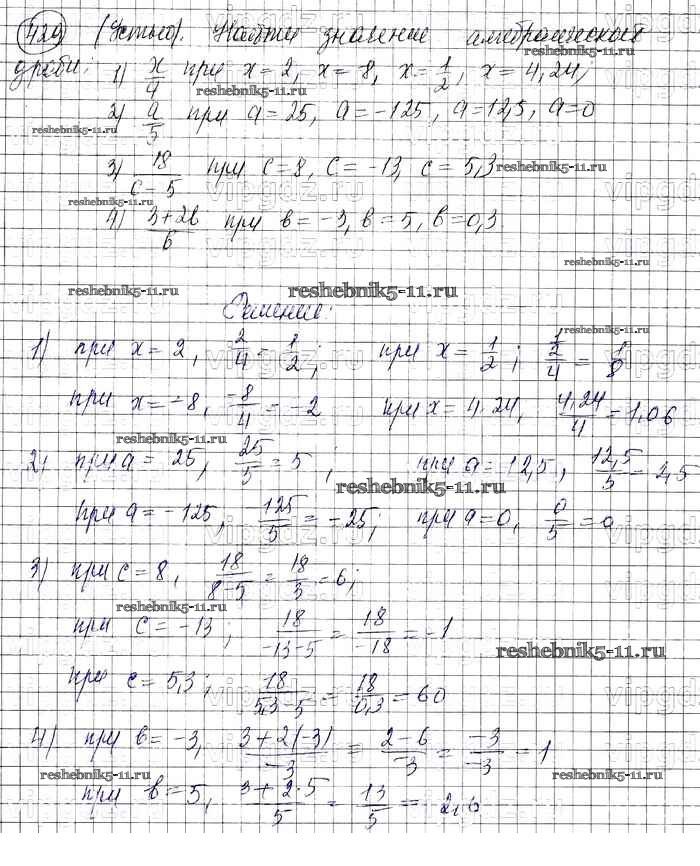 429 (Устно). Найти значение алгебраической
дроби: 1) x/4 при x=2, x=8, x=1/2, x=4,24;
2) a/5 при a=25, a=-125, a=12,5, a=0
3) 18/(c-5) при c=8, c=-13, c=5,3
4) (3+2b)/b при b=-3, b=5, b=0,3
Решение:
1) при x=2, 2/4=1/2; при x=1/2; (1/2)/4=1/8
при x=-8, -8/4=-2 при x=4,24, 4,24/4=1,06
2) при a=25, 25/5=5; при a=12,5, 12,5/5=2,5
при a=-125, -125/5=-25; при a=0, 0/5=0
3) при c=8, 18/(8-5)=18/3=6;
при c=-13; 18/(-13-5)=18/-18=-1
при c=5,3; 18/(5,3-5)=18/0,3=60
4) при b=-3, (3+2(-3))/-3=(2-6)/-3=-3/-3=1
при b=5, (3+2·5)/5=13/5=2,6
reshebnik5-11.ru
vipgdz.ru